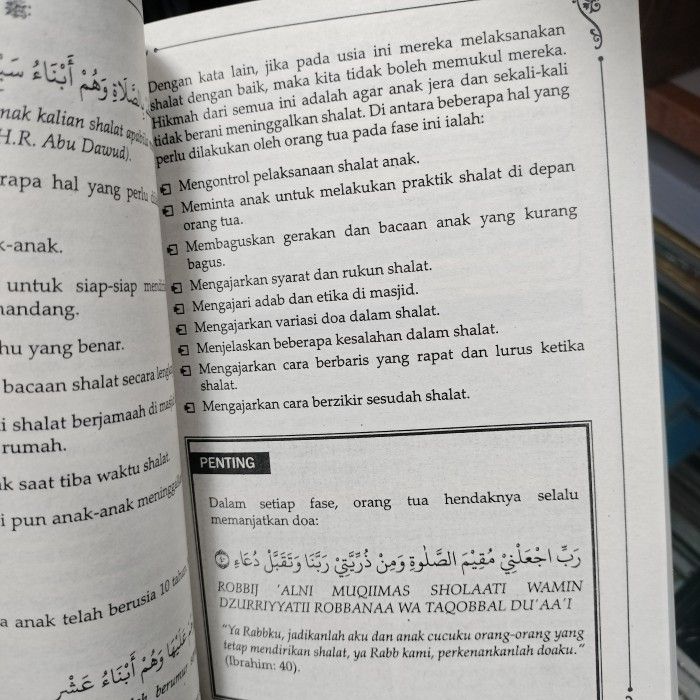 الصَّلَاةِ وَهُمْ أَبْنَاءُ
nak kalian shalat
H.R. Abu Dawud).
rapa hal yang perlu
k-anak.
untuk siap-siap
nandang.
hu yang benar.
bacaan shalat secara
i shalat berjamaah di
rumah.
k saat tiba waktu shalat.
i pun anak-anak
a anak telah berusia 10
عَلَيْهَا وَهُمْ أَبْنَاءُ عَشْرِ
Dengan kata lain, jika pada usia ini mereka melaksanakan
shalat dengan baik, maka kita tidak boleh memukul mereka.
Hikmah dari semua ini adalah agar anak jera dan sekali-kali
tidak berani meninggalkan shalat. Di antara beberapa hal yang
perlu dilakukan oleh orang tua pada fase ini ialah:
Mengontrol pelaksanaan shalat anak.
Meminta anak untuk melakukan praktik shalat di depan
orang tua.
Membaguskan gerakan dan bacaan anak yang kurang
bagus.
Mengajarkan syarat dan rukun shalat.
Mengajari adab dan etika di masjid.
Mengajarkan variasi doa dalam shalat.
Menjelaskan beberapa kesalahan dalam shalat.
Mengajarkan cara berbaris yang rapat dan lurus ketika
shalat.
Mengajarkan cara berzikir sesudah shalat.
PENTING
Dalam setiap fase, orang tua hendaknya selalu
memanjatkan doa:
رَبِّ اجْعَلْنِيْ مُقِيْمَ الصَّلٰوةِ وَمِنْ ذُرِّيَّتِيْ رَبَّنَا وَتَقَبَّلْ دُعَاۤءِ ٤٠
ROBBIJ 'ALNI MUQIIMAS SHOLAATI WAMIN
DZURRIYYATII ROBBANAA WA TAQOBBAL DU'AA'I
"Ya Rabbku, jadikanlah aku dan anak cucuku orang-orang yang
tetap mendirikan shalat, ya Rabb kami, perkenankanlah doaku."
(Ibrahim: 40).